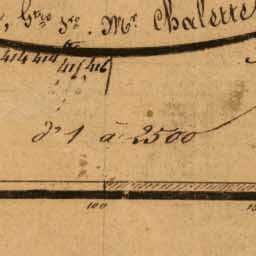 Mr. Chalette
414 414
415 416
de 1 à 2500
100